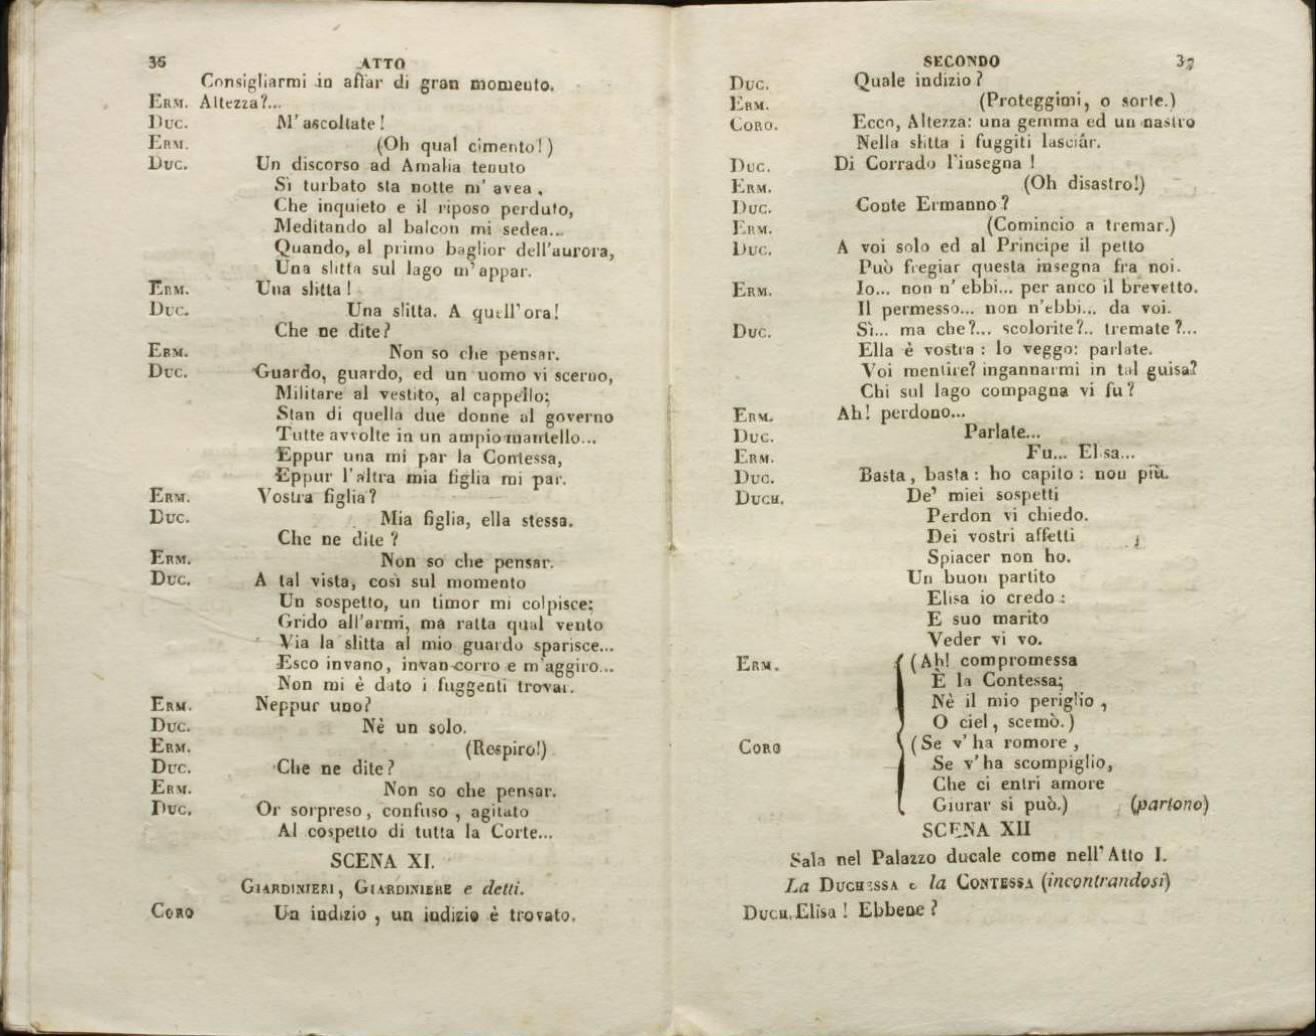 36 ATTO
Consigliarmi in affar di gran momento.
ERM. Altezza?...
DUC. M'ascoltate!
ERM. (Oh qual cimento!)
DUC. Un discorso ad Amalia tenuto
Sì turbato sta notte m'avea,
Che inquieto e il riposo perduto,
Meditando al balcon mi sedea...
Quando, al primo baglior dell'aurora,
Una slitta sul lago m'appar.
ERM. Una slitta!
DUC. Una slitta. A quell'ora!
Che ne dite?
ERM. Non so che pensar.
DUC. Guardo, guardo, ed un uomo vi scerno,
Militare al vestito, al cappello;
Stan di quella due donne al governo
Tutte avvolte in un ampio mantello...
Eppur una mi par la Contessa,
Eppur l'altra mia figlia mi par.
ERM. Vostra figlia?
DUC. Mia figlia, ella stessa.
Che ne dite?
ERM. Non so che pensar.
DUC. A tal vista, così sul momento
Un sospetto, un timor mi colpisce;
Grido all'armi, ma ratta qual vento
Via la slitta al mio guardo sparisce...
Esco invano, invan corro e m'aggiro...
Non mi è dato i fuggenti trovar.
ERM. Neppur uno?
DUC. Nè un solo.
ERM. (Respiro!)
DUC. Che ne dite?
ERM. Non so che pensar.
DUC. Or sorpreso, confuso, agitato
Al cospetto di tutta la Corte...
SCENA XI.
GIARDINIERI, GIARDINIERE e detti.
CORO Un indizio, un indizio è trovato.
SECONDO 37
DUC. Quale indizio?
ERM. (Proteggimi, o sorte.)
CORO. Ecco, Altezza: una gemma ed un nastro
Nella slitta i fuggiti lasciâr.
DUC. Di Corrado l'insegna!
ERM. (Oh disastro!)
DUC. Conte Ermanno?
ERM. (Comincio a tremar.)
DUC. A voi solo ed al Principe il petto
Può fregiar questa insegna fra noi.
ERM. Io... non n'ebbi... per anco il brevetto.
Il permesso... non n'ebbi... da voi.
DUC. Sì... ma che?... scolorite?.. tremate?...
Ella è vostra: lo veggo: parlate.
Voi mentire? ingannarmi in tal guisa?
Chi sul lago compagna vi fu?
ERM. Ah! perdono...
DUC. Parlate...
ERM. Fu... Elisa...
DUC. Basta, basta: ho capito: non più.
DUCH. De' miei sospetti
Perdon vi chiedo.
Dei vostri affetti
Spiacer non ho.
Un buon partito
Elisa io credo:
E suo marito
Veder vi vo.
ERM. (Ah! compromessa
È la Contessa;
Nè il mio periglio,
O ciel, scemò.)
CORO (Se v'ha romore,
Se v'ha scompiglio,
Che ci entri amore
Giurar si può.) (partono)
SCENA XII
Sala nel Palazzo ducale come nell'Atto I.
La DUCHESSA e la CONTESSA (incontrandosi)
DUCH. Elisa! Ebbene?